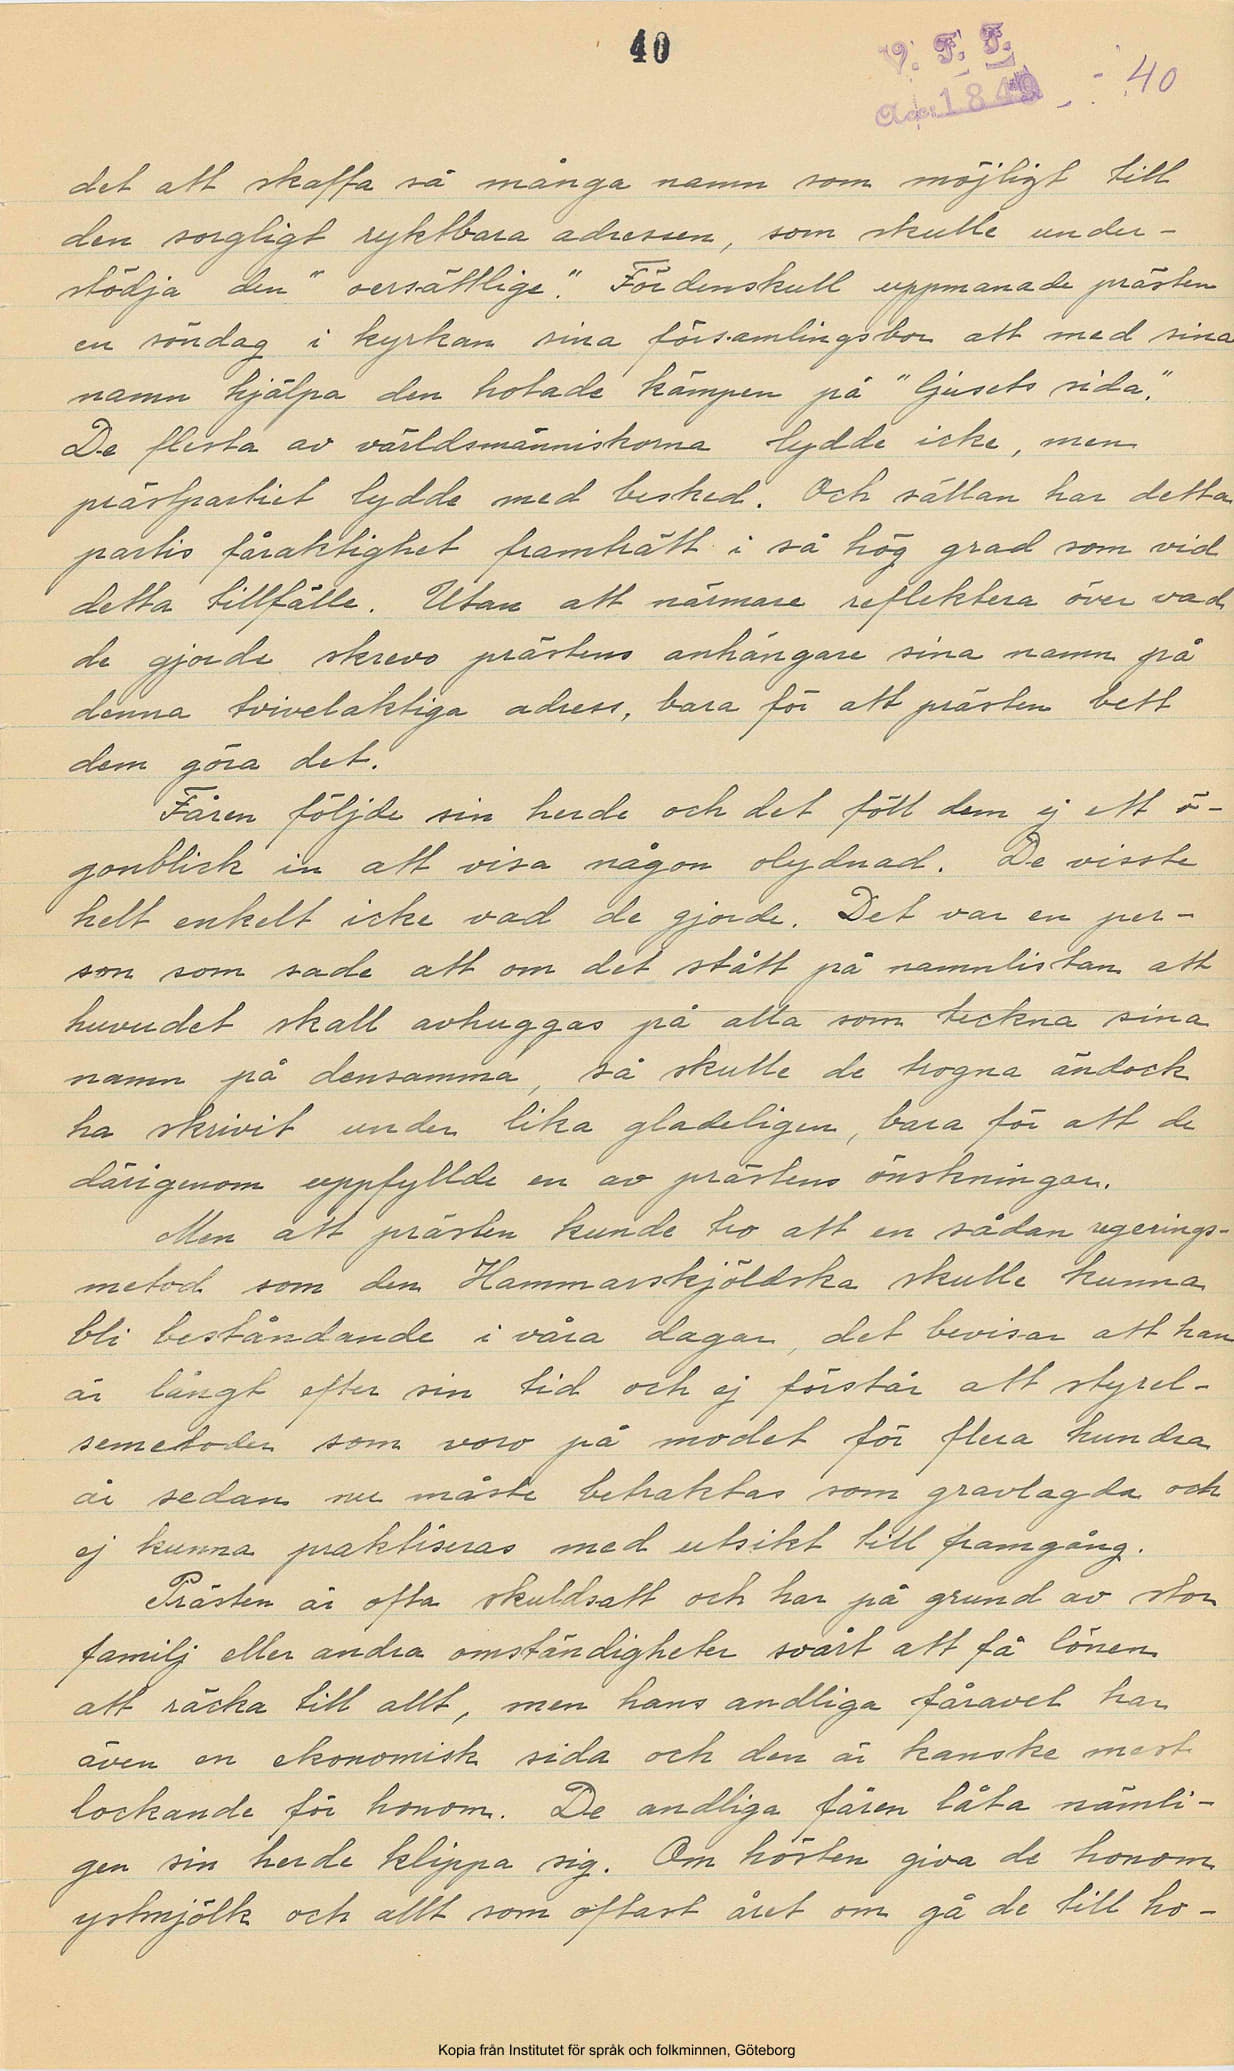 40
V. F. F.
Acc. 1840 - : 40
det att skaffa så många namn som möjligt till
den sorgligt ryktbara adressen, som skulle under-
stödja den "oersättlige". Fördenskull uppmanade prästen
en söndag i kyrkan sina församlingsbor att med sina
namn hjälpa den hotade kämpen på "ljusets sida".
De flesta av världsmänniskorna lydde icke, men
prästpartiet lydde med besked. Och sällan har detta
partis fåraktighet framträtt i så hög grad som vid
detta tillfälle. Utan att närmare reflektera över vad
de gjorde skrevo prästens anhängare sina namn på
denna tvivelaktiga adress, bara för att prästen bett
dem göra det.
Fåren följde sin herde och det föll dem ej ett ö-
gonblick in att visa någon olydnad. De visste
helt enkelt icke vad de gjorde. Det var en per-
son som sade att om det stått på namnlistan att
huvudet skall avhuggas på alla som teckna sina
namn på densamma, så skulle de trogna ändock
ha skrivit under lika gladeligen, bara för att de
därigenom uppfyllde en av prästens önskningar.
Men att prästen kunde tro att en sådan regerings-
metod som den Hammarskjöldska skulle kunna
bli beståndande i våra dagar, det bevisar att han
är långt efter sin tid och ej förstår att styrel-
semetoder som voro på modet för flera hundra
år sedan nu måste betraktas som gravlagda och
ej kunna praktiseras med utsikt till framgång.
Prästen är ofta skuldsatt och har på grund av stor
familj eller andra omständigheter svårt att få lönen
att räcka till allt, men hans andliga fåravel har
även en ekonomisk sida och den är kanske mest
lockande för honom. De andliga fåren låta nämli-
gen sin herde klippa sig. Om hösten giva de honom
ystmjölk och allt som oftast året om gå de till ho-
Kopia från Institutet för språk och folkminnen, Göteborg